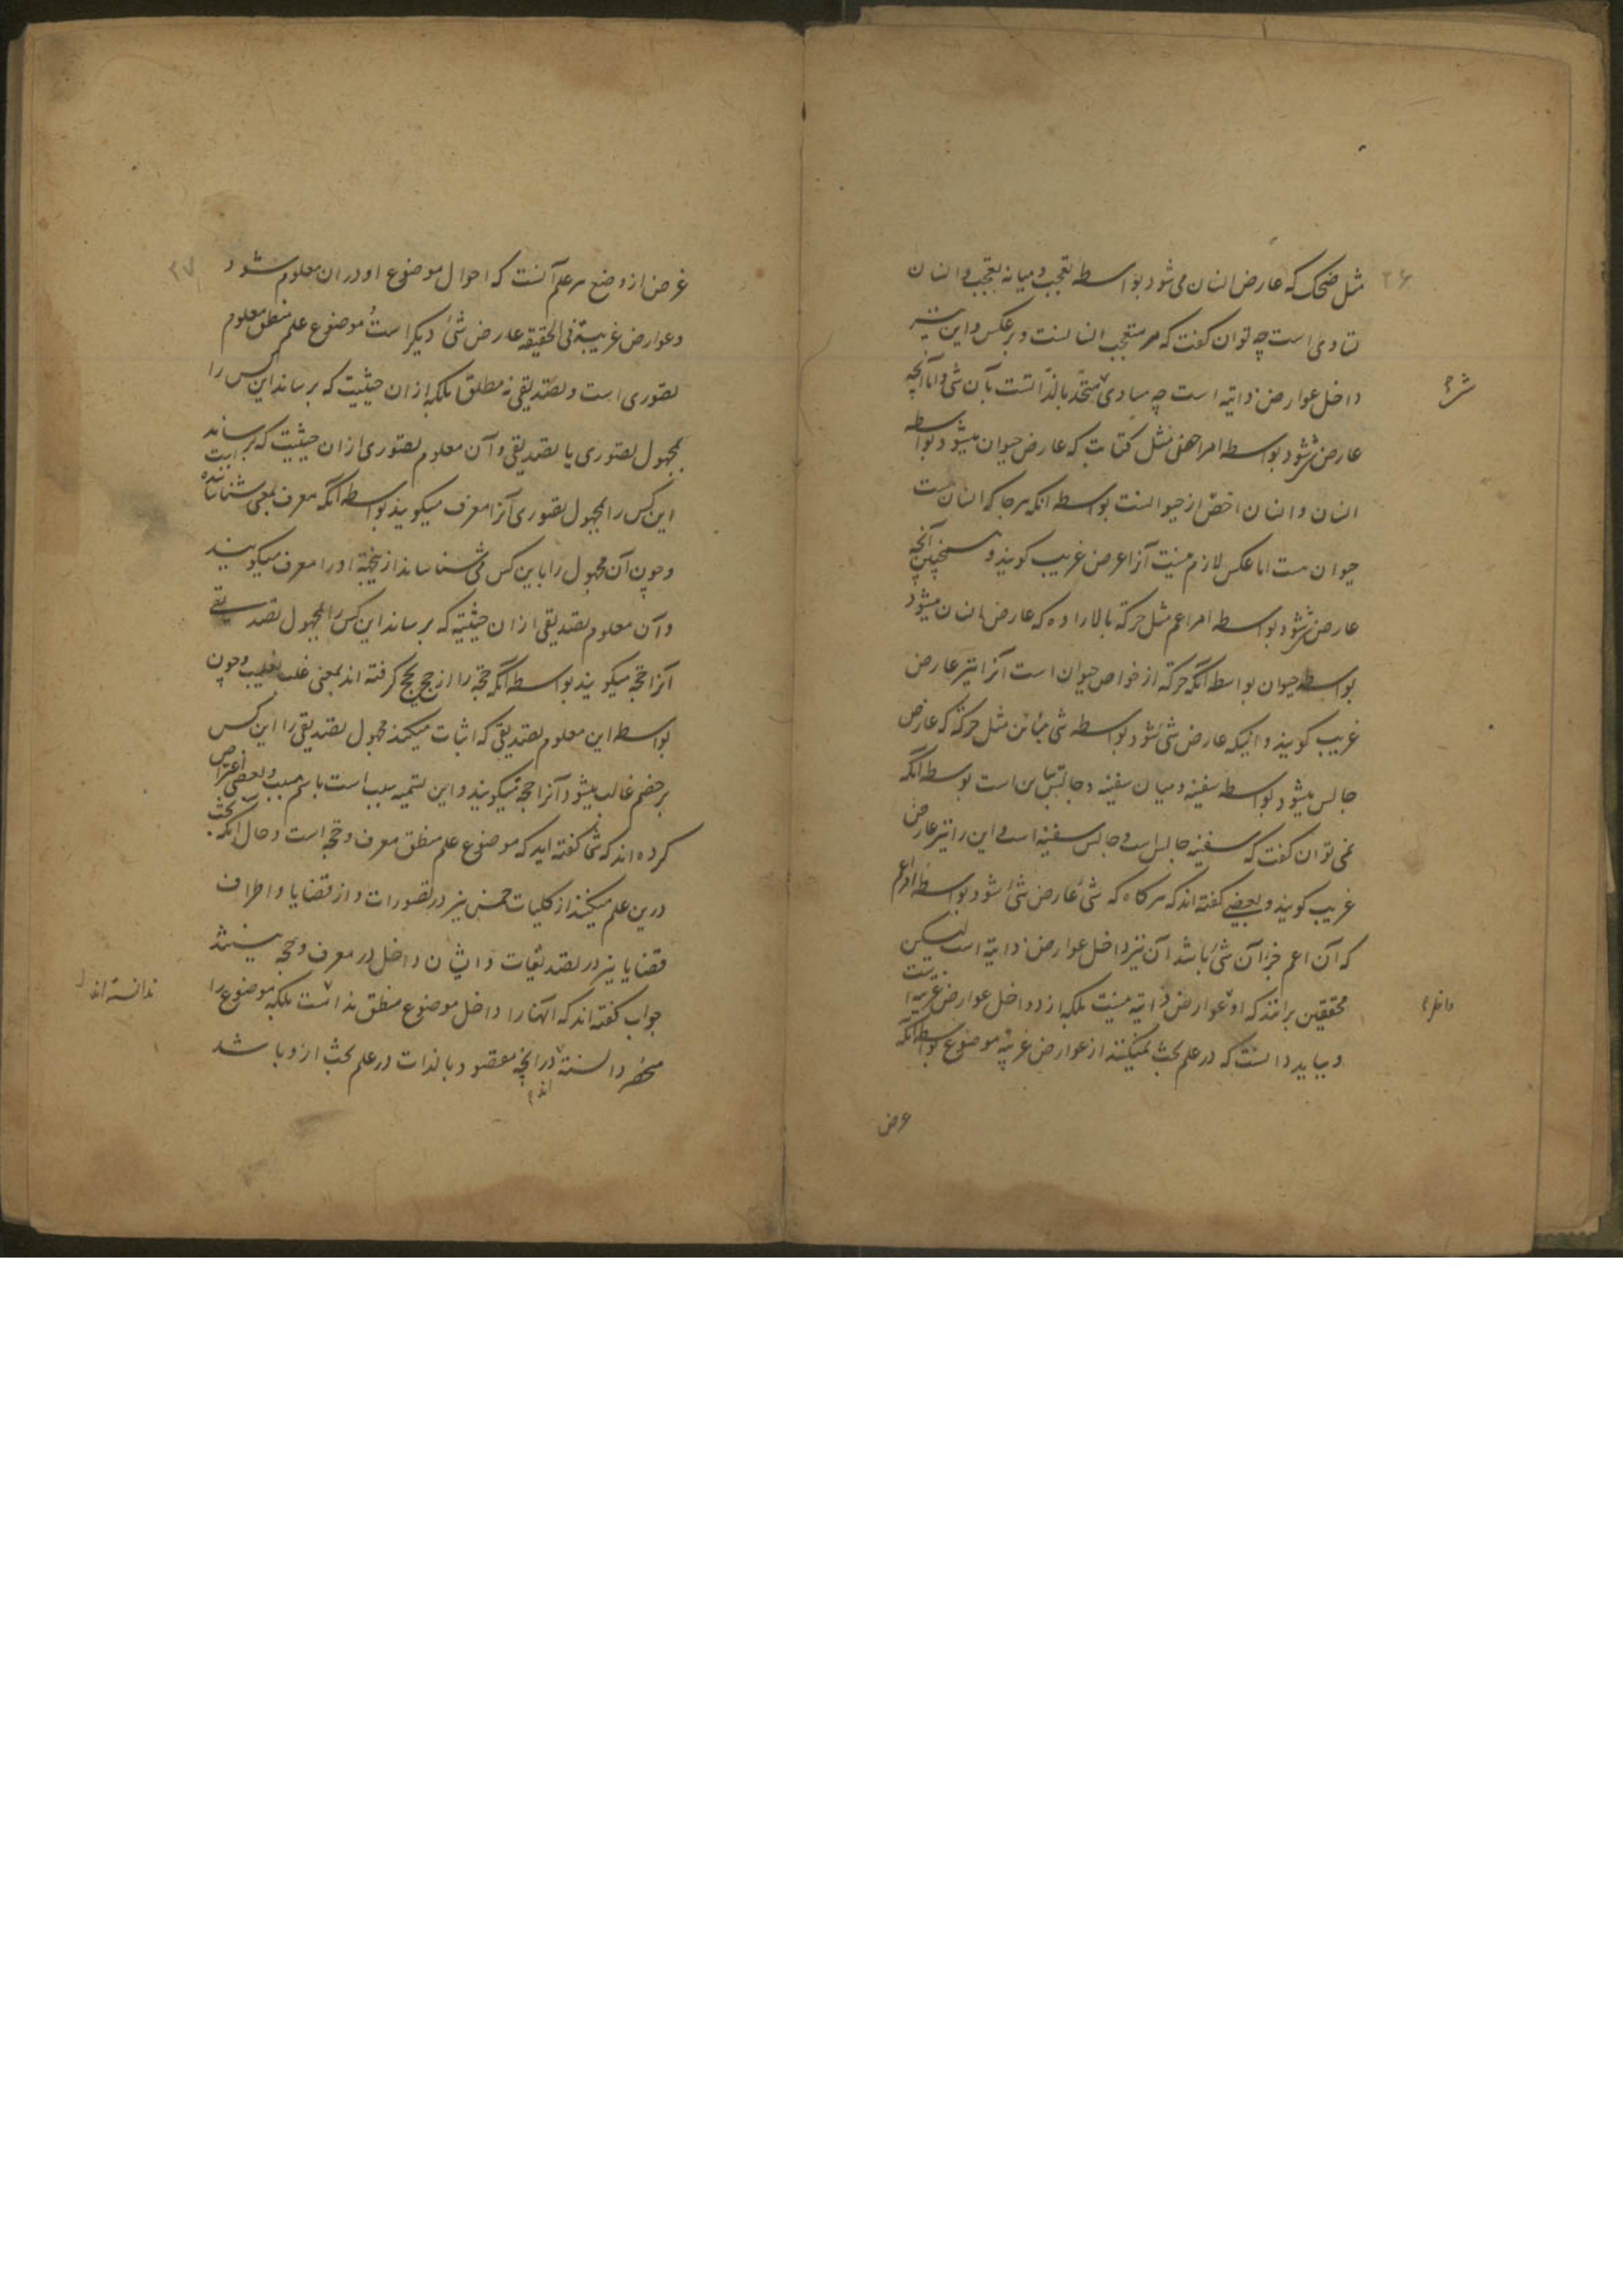 ۲۶
مثل ضحک که عارض انسان می شود بواسطه تعجب و میانه تعجب و انسان
تساوی است چه توان کفت که هر متعجب انسانست و برعکس و این نیز
داخل عوارض ذاتیه است چه مساوی شئ متحد بالذاتست بآن شی و اما آنچه
شئ
عارض شئ شود بواسطه امر اخص مثل کتابت که عارض حیوان میشود بواسطه
انسان و انسان اخص از حیوانست بواسطه آنکه هر جا که انسانست
حیوان هست اما عکس لازم نیست آنرا عرض غریب کویند و همچنین آنچه
عارض شئ شود بواسطه امر اعم مثل حرکة بالاراده که عارض انسان میشود
بواسطه حیوان بواسطه آنکه حرکة از خواص حیوان است آنرا نیز عارض
غریب کویند و انیکه عارض شئ شود بواسطه شی مبائن مثل حرکة که عارض
جالس میشود بواسطه سفینه و میان سفینه و جالس تباین است بواسطه آنکه
نمی توان کفت که سفینه جالس است و جالس سفینه است و این را نیز عارض
غریب کویند و بعضی کفته اند که هر کاه که شئ عارض شئ شود بواسطه امر اعم
که آن اعم جزء آن شئ باشد آن نیز داخل عوارض ذاتیه است لیکن
محققین برانند که او عوارض ذاتیه نیست بلکه از و داخل عوارض غریبه است
داخل
و بباید دانست که در علم بحث نمیکنند از عوارض غریبه موضوع بواسطه آنکه
غرض
۲۷
غرض از وضع هر علم آنست که احوال موضوع او در ان معلوم شود
و عوارض غریبة فی الحقیقه عارض شئ دیکر است و موضوع علم منطق معلوم
تصوری است و تصدیقی نه مطلق بلکه از ان حیثیت که برساند این کس را
بمجهول تصوری یا تصدیقی و آن معلوم تصوری از ان حیثیت که برساند
این کس را بمجهول تصوری آنرا معرف میکویند بواسطه آنکه معرف بمعنی شناساننده است
و چون آن مجهول را باین کس می شناساند از ینجهة او را معرف میکویند
و آن معلوم تصدیقی از ان حیثیته که برساند این کس را بمجهول تصدیقی
آنرا حجة میکویند بواسطه آنکه حجة را از حج یحج کرفته اند بمعنی غلب یغلب و چون
بواسطه این معلوم تصدیقی که اثبات میکند مجهول تصدیقی را این کس
بر خصم غالب میشود آنرا حجة میکویند و این تسمیه سبب است باسم مسبب و بعضی اعتراض
کرده اند که شما کفته اید که موضوع علم منطق معرف و حجة است و حال آنکه بحث
درین علم میکنند از کلیات خمس نیز در تصورات و از قضایا و اطراف
قضایا نیز در تصدیقات و ایشان داخل در معرف و حجه نیستند
جواب کفته اند که آنها را داخل موضوع منطق نداشت بلکه موضوع را
ندانسته اند
منحصر دانسته در انچه مقصود بالذات در علم بحث از و باشد
اند